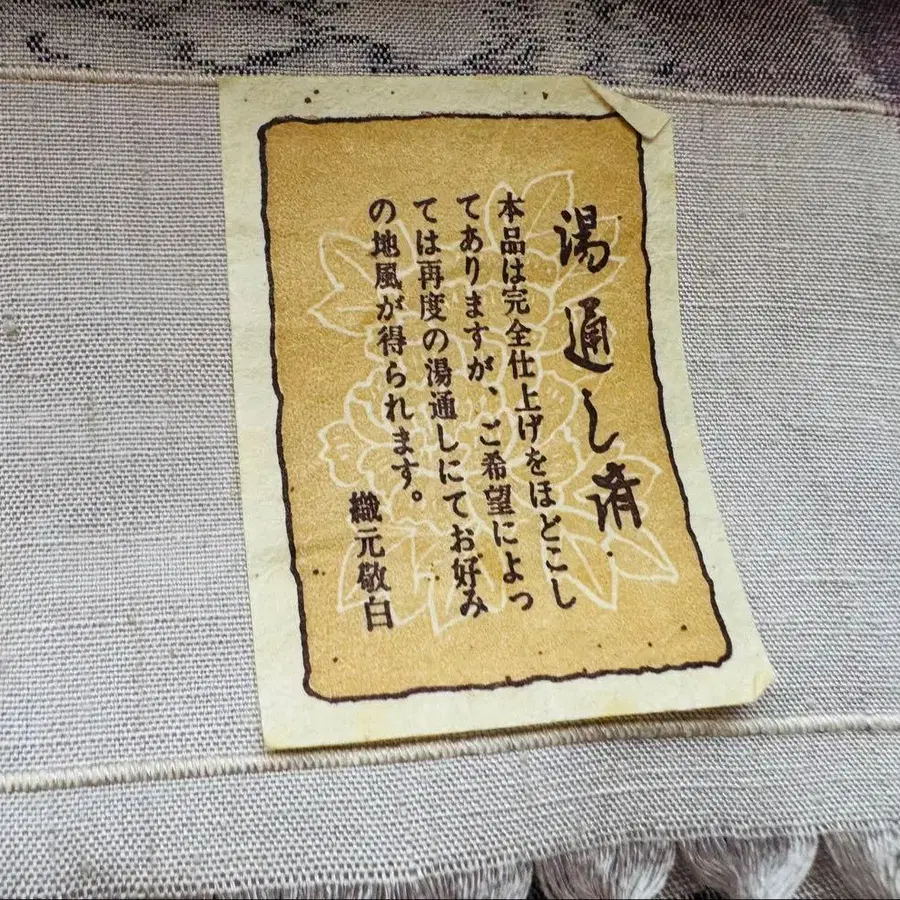 湯通し済
本品は完全仕上げをほどこし
てありますが、ご希望によっ
ては再度の湯通しにてお好み
の地風が得られます。
織元敬白